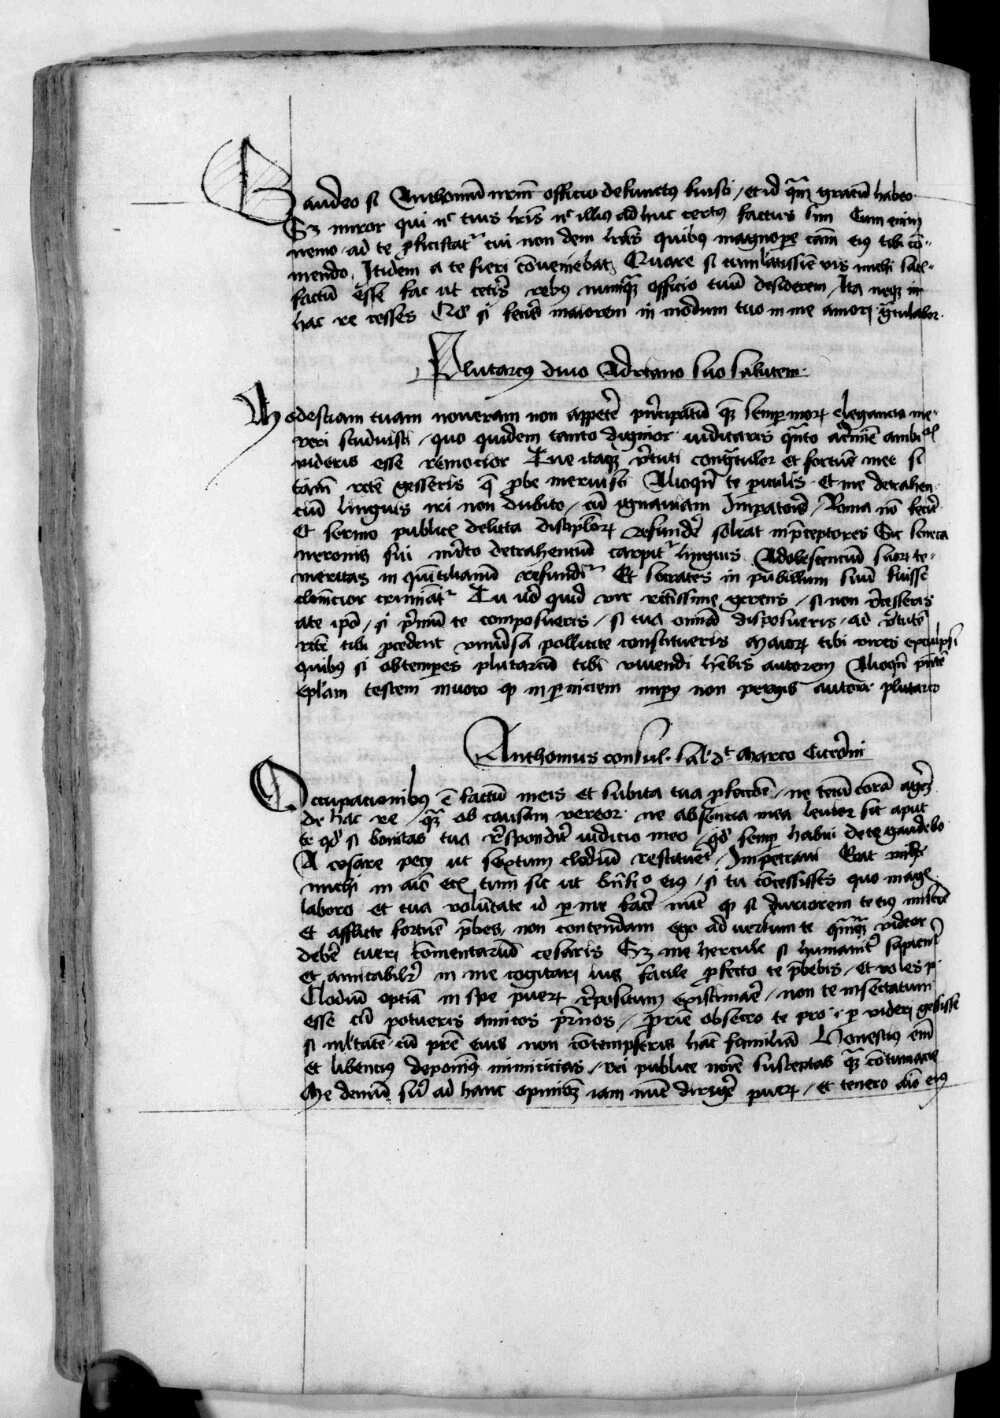 Gaudeo si Anthoniū nrm̄ officio defunctus fuisti / et id q̃m gratū habeo
Sꝫ miror qui nͨ tuis lr̃is nͨ illius ad huc certus factus sim Cum enim
nemo ad te ꝓficiscat͛ cui non dem lr̃as quibus magnope cām eius tibi cō-
mendo. Itidem a te fieri cōveniebat Quare si cumlatissīe vis michi satis-
factū esse fac ut cet̃is rebus numq̃ officio tuū desiderem / Ita neqꝫ in
hac re cesses Qd̕ si fec̃is maiorem in modum tuo in me amori g̃tulabor
Plutarcus divo Adriano suo salutem
Modestiam tuam noveram non appet̃e pr̃cipatū q̃ꝫ semp moꝝ elegancia me-
reri studuisti / quo quidem tanto dignior iudicaris q̃nto ac̃mīe ambiōīs
videris esse remocior Tue itaqꝫ v̓tuti congr̃tulor et fortūe mee si
tam̄ recte gesseris q̃ ꝓbe meruisti Alioqn̄ te piculis Et me detrahen-
ciū linguis iri non dubito / cū ignaviam Impatoꝝ Roma nō fer̃
Et sermo publicꝰ delicta disciploꝝ refund̃e soleat in p̄ceptores Sic seneca
neronis sui mr̃ito detrahenciū carpit͛ linguis Adolescenciū suoꝝ te-
meritas in quītilianū refundit͛ Et socrates in pubillum suū fuisse
clemēcior criminat͛ Tu v̓o quid vis rectissime gerens / si non r̃cesseris
a te ip̄o / si pr̃mū te composueris / si tua omīa disposueris ad v̓tutē
rēte tibi ꝓcedent univ̓sa pollitice constitueris maioꝝ tibi vires exculpsi
quibus si obtemperes plutarcū tibi vivendi h̄bis autorem Alioqn̄ p̄ntē
ep̄lam testem invoco qꝫ in pniciem impij non pergis autore plutarco
Anthonius consul. Sal. d͛t Marco Cicer̃oni
Occupationibus ē factū meis et subita tua ꝓfectōe / ne tecū corā ag̃eꝫ
de hac re / q̃ꝫ ob causam vereor ne absencia mea levior sit aput
te qd̕ si bonitas tua r̃sponder̃it iudicio meo / qd̕ semp habui de te gaudebo
A cesare pecij ut sextum clodiū restituer̃et Impetravi Erat
michi in aīo eciā tum sic ut bn̄fic̊ eius / si tu cōcessisses quo magꝭ
laboro et tua volūtate id p me fac̃e nūc qꝫ si duriorem te eius miserīe
Et afflicte fortūe p̄bes / non contendam ego adversum te q̃nq̃m videor
deb̃e tueri cōmentariū cesaris Sꝫ me hercule si humanit͛ sapient͛
Et amicabilit͛ in me cogitari vis facile ꝓfecto te p̄bebis / Et voles p.
Clodiū optīa in spe pueꝝ r̃positum existimar̃e / non te insectatum
esse cū potueris amicos pr̃nos / Patr̃e obsecro te pro r̓ p videri gessisse
si multatē cū pr̃e eius non cōtempseris hāc familiā Honestius em̄
Et libencius deponim̄ꝰ inimicitias / rei publice noīe susceptas q̃ꝫ cōtumacie
Me demū sin̄ ad hanc opinioꝫ iam nūc dirig̃e pueꝝ / Et tenero aīo eius